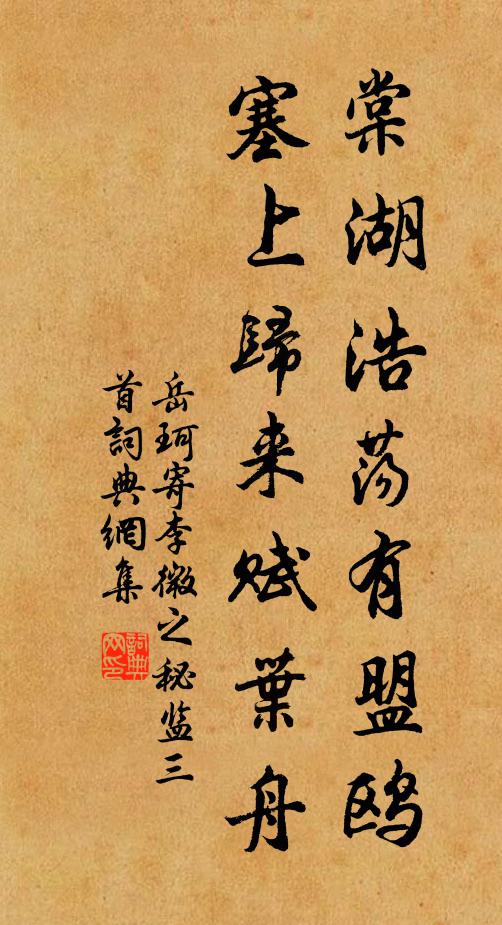 棠湖浩荡有盟鸥
塞上歸来赋葉舟
岳珂寄李微之秘监三
首詞典網集
詞典网印